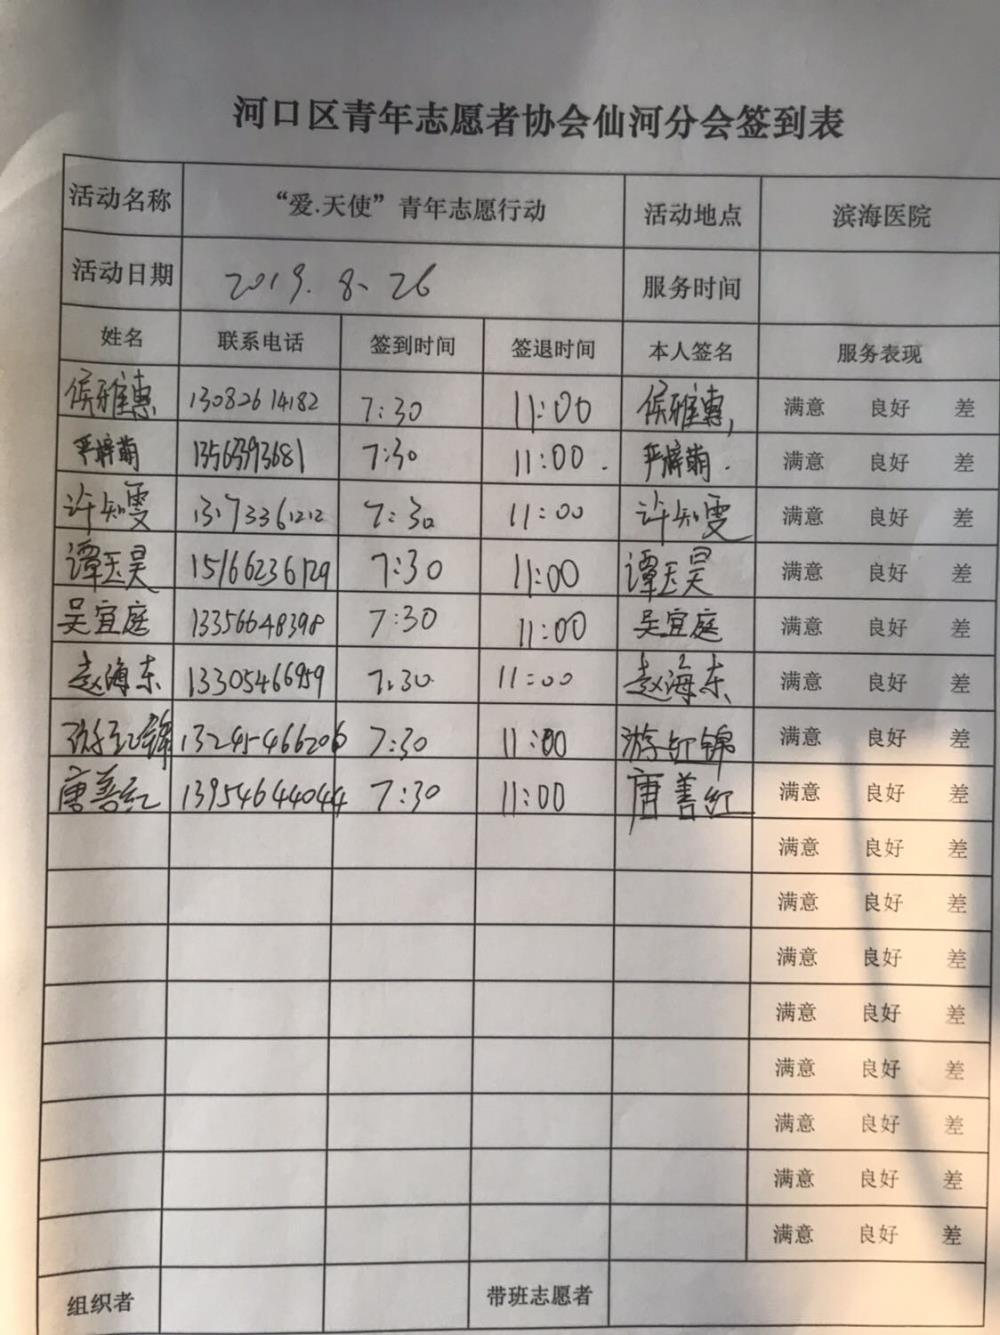 河口区青年志愿者协会仙河分会签到表
活动名称 “爱.天使”青年志愿行动 活动地点 滨海医院
活动日期 2019.8.26 服务时间
姓名 联系电话 签到时间 签退时间 本人签名 服务表现
侯雅惠 13082614182 7:30 11:00 侯雅惠, 满意 良好 差
严梓萌 13563393681 7:30 11:00. 严梓萌. 满意 良好 差
许知雯 13173361212 7:30 11:00 许知雯 满意 良好 差
谭玉昊 15166236129 7:30 11:00 谭玉昊 满意 良好 差
吴宜庭 13356648398 7:30 11:00 吴宜庭 满意 良好 差
赵海东 13305466959 7:30 11:00 赵海东 满意 良好 差
游红锦 13245466206 7:30 11:00 游红锦 满意 良好 差
唐善红 13954644044 7:30 11:00 唐善红 满意 良好 差
满意 良好 差
满意 良好 差
满意 良好 差
满意 良好 差
满意 良好 差
满意 良好 差
满意 良好 差
满意 良好 差
组织者 带班志愿者